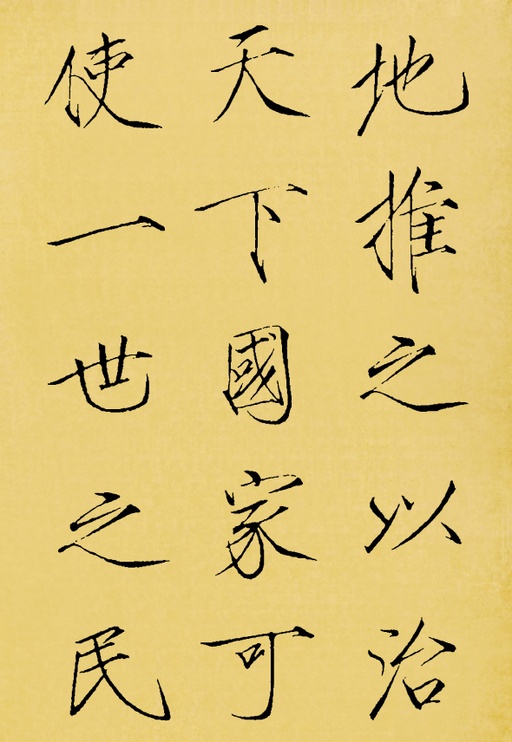 地推之以治
天下國家可
使一世之民